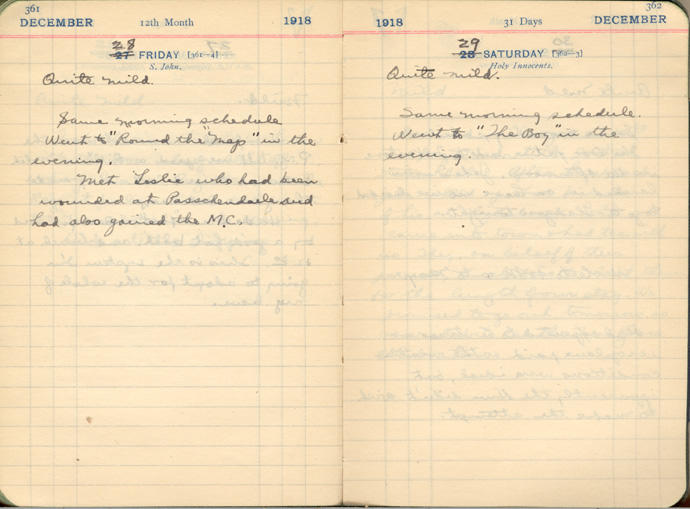 361
DECEMBER 12th Month 1918
28
27 FRIDAY [361-4]
S. John.
Quite mild.
Same morning schedule
Went to "Round the "Map" in the
evening.
Met Leslie who had been
wounded at Passchendaele and
had also gained the M.C.
362
1918 31 Days DECEMBER
29
28 SATURDAY [362-3]
Holy Innocents.
Quite mild.
Same morning schedule.
Went to "The Boy" in the
evening.